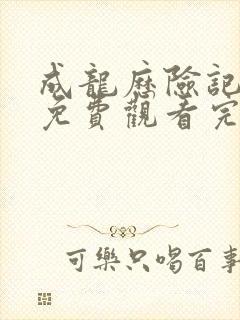 成龍歷險記
免費觀看完
可樂只喝百事